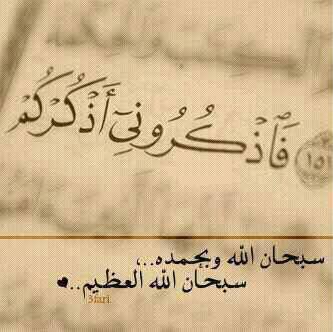 ١٥١ فَٱذْكُرُونِىٓ أَذْكُرْكُمْ
سبحان الله وبحمده..،
سبحان الله العظيم..♥
3fari